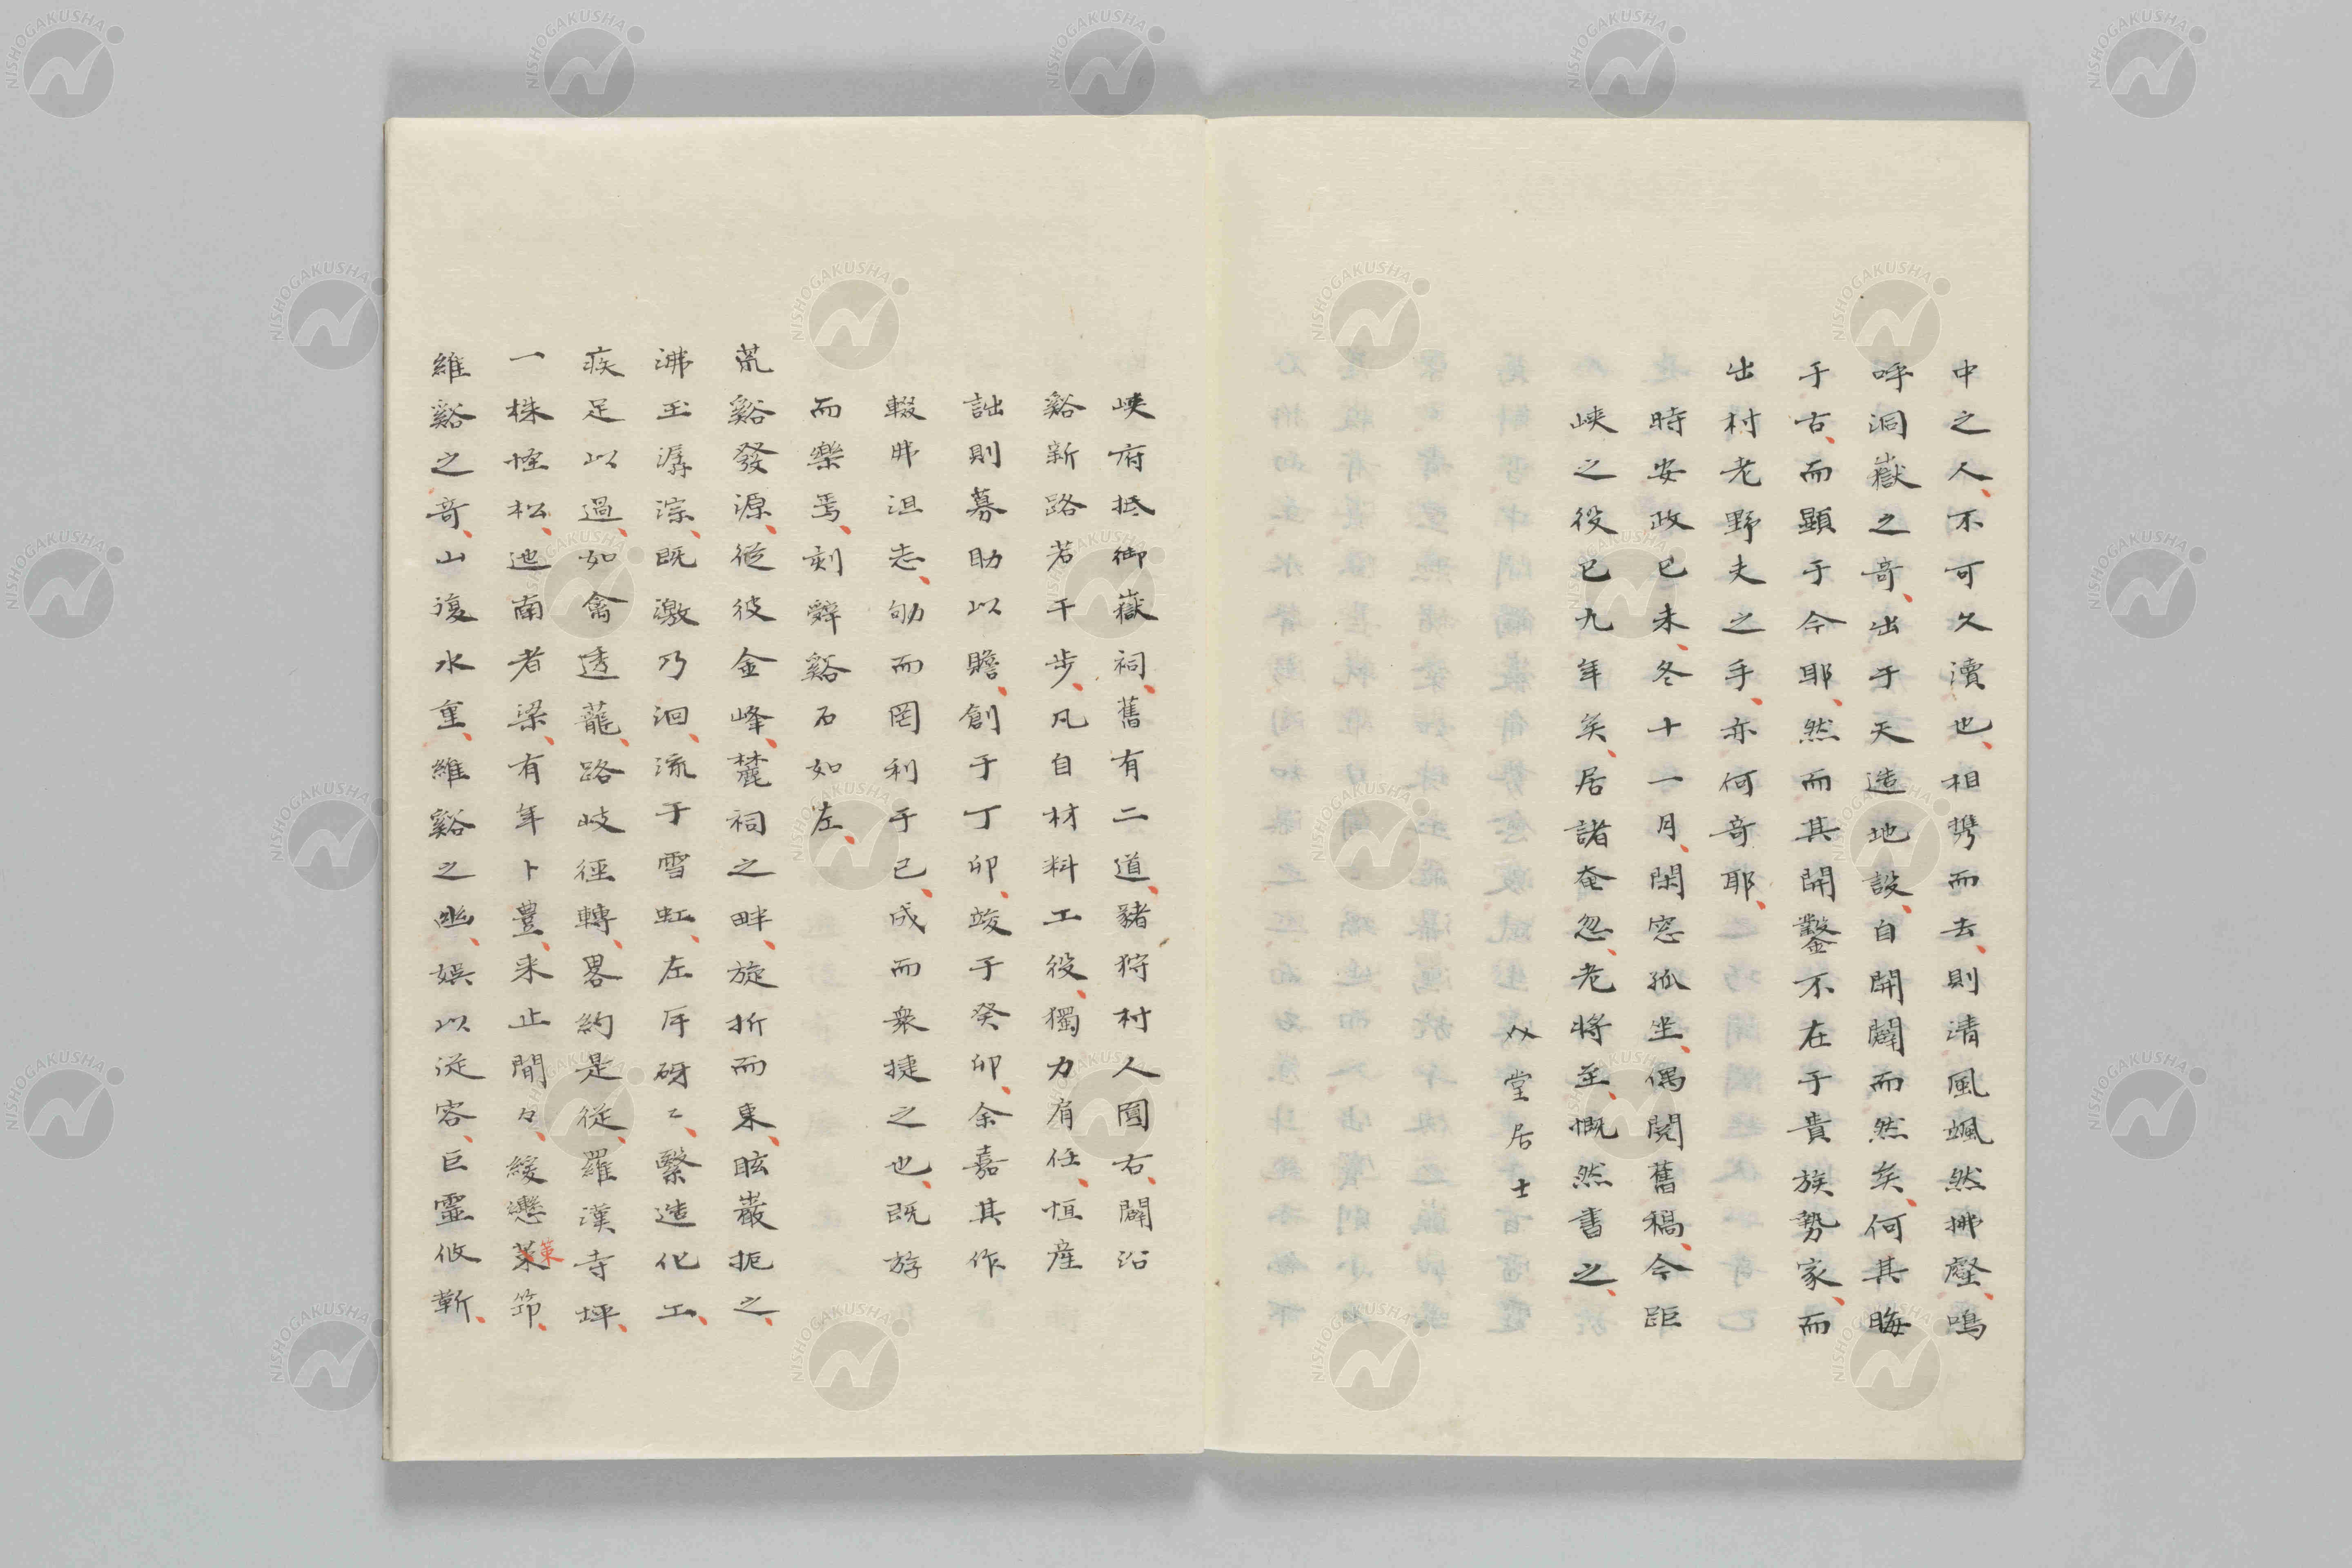 中之人、不可久瀆也、相携而去、則清風颯然拂壑、鳴
呼洞嶽之竒、出于天造地設、自開闢而然矣、何其晦
于古、而顯于今耶、然而其開鑿不在于貴族勢家、而
出村老野夫之手、亦何竒耶、
時安政己未、冬十一月、閑窓孤坐、偶閲舊稿、今距
峡之役已九年矣、居諸奄忽、老將至、慨然書之、
堂居士
峡府抵御嶽祠、舊有二道、豬狩村人圓右、闢沿
谿新路若干步、凡自材料工役、獨力肩任、恒産
詘則募助以贍、創于丁卯、竣于癸卯、余嘉其作
輟弗沮志、劬而罔利于己、成而衆捷之也、既游
而樂焉、刻辭谿石如左、
荒谿發源、從彼金峰、麓祠之畔、旋折而東、眩巖扼之、
沸玉潺淙、既激乃洄、流于雪虹、左厈砑〻、繄造化工、
疾足以過、如禽透蘢、路岐徑轉、畧約是從、羅漢寺坪、
一株怪松、迆南者梁、有年卜豊、来止間々、緩懸莱筇、
莱
維谿之竒、山復水重、維谿之幽、娯以從容、巨靈攸斬、
NISHOGAKUSHA